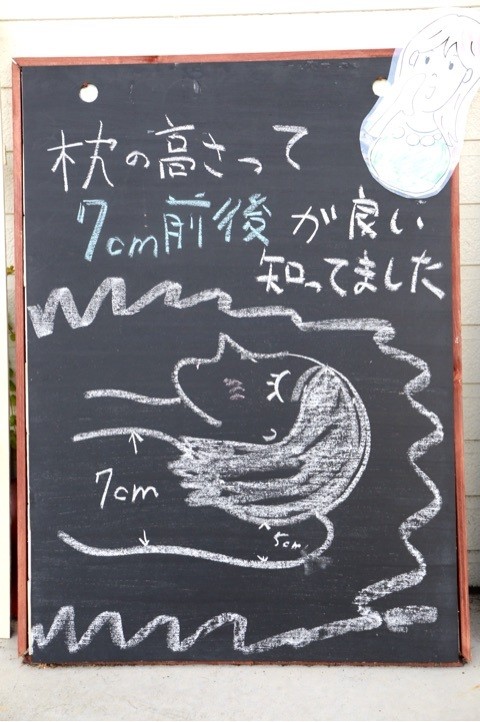 枕の高さって
7cm前後が良い
知ってました
7cm
5cm